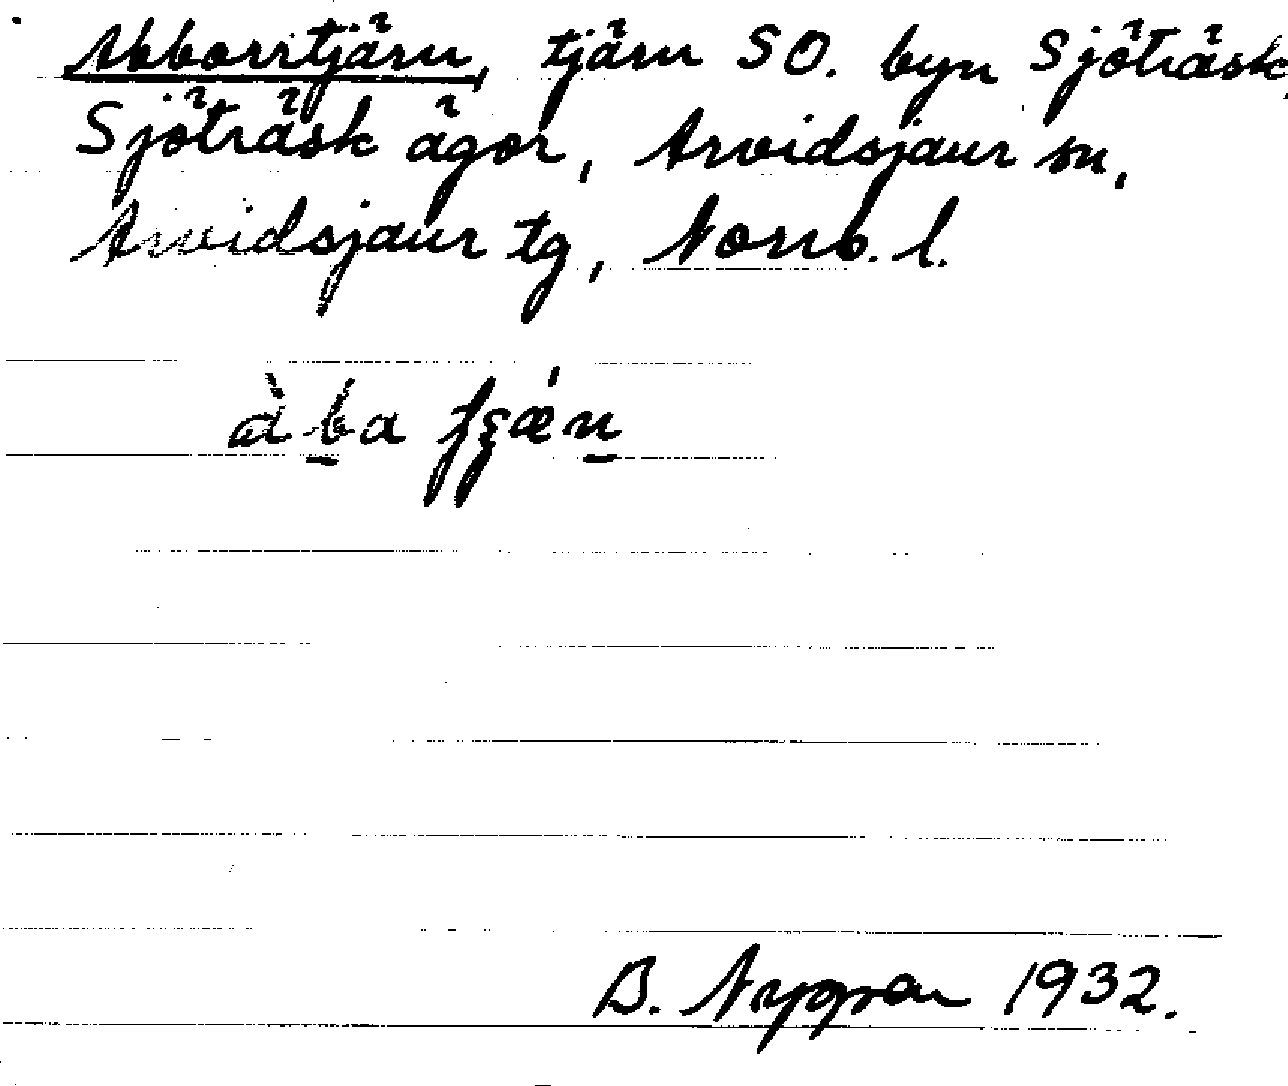 Abborrtjärn, tjärn SO. byn Sjöträsk,
Sjöträsk ägor, Arvidsjaur sn,
Arvidsjaur tg, Norrb. l.
àba
B. Nygren 1932.